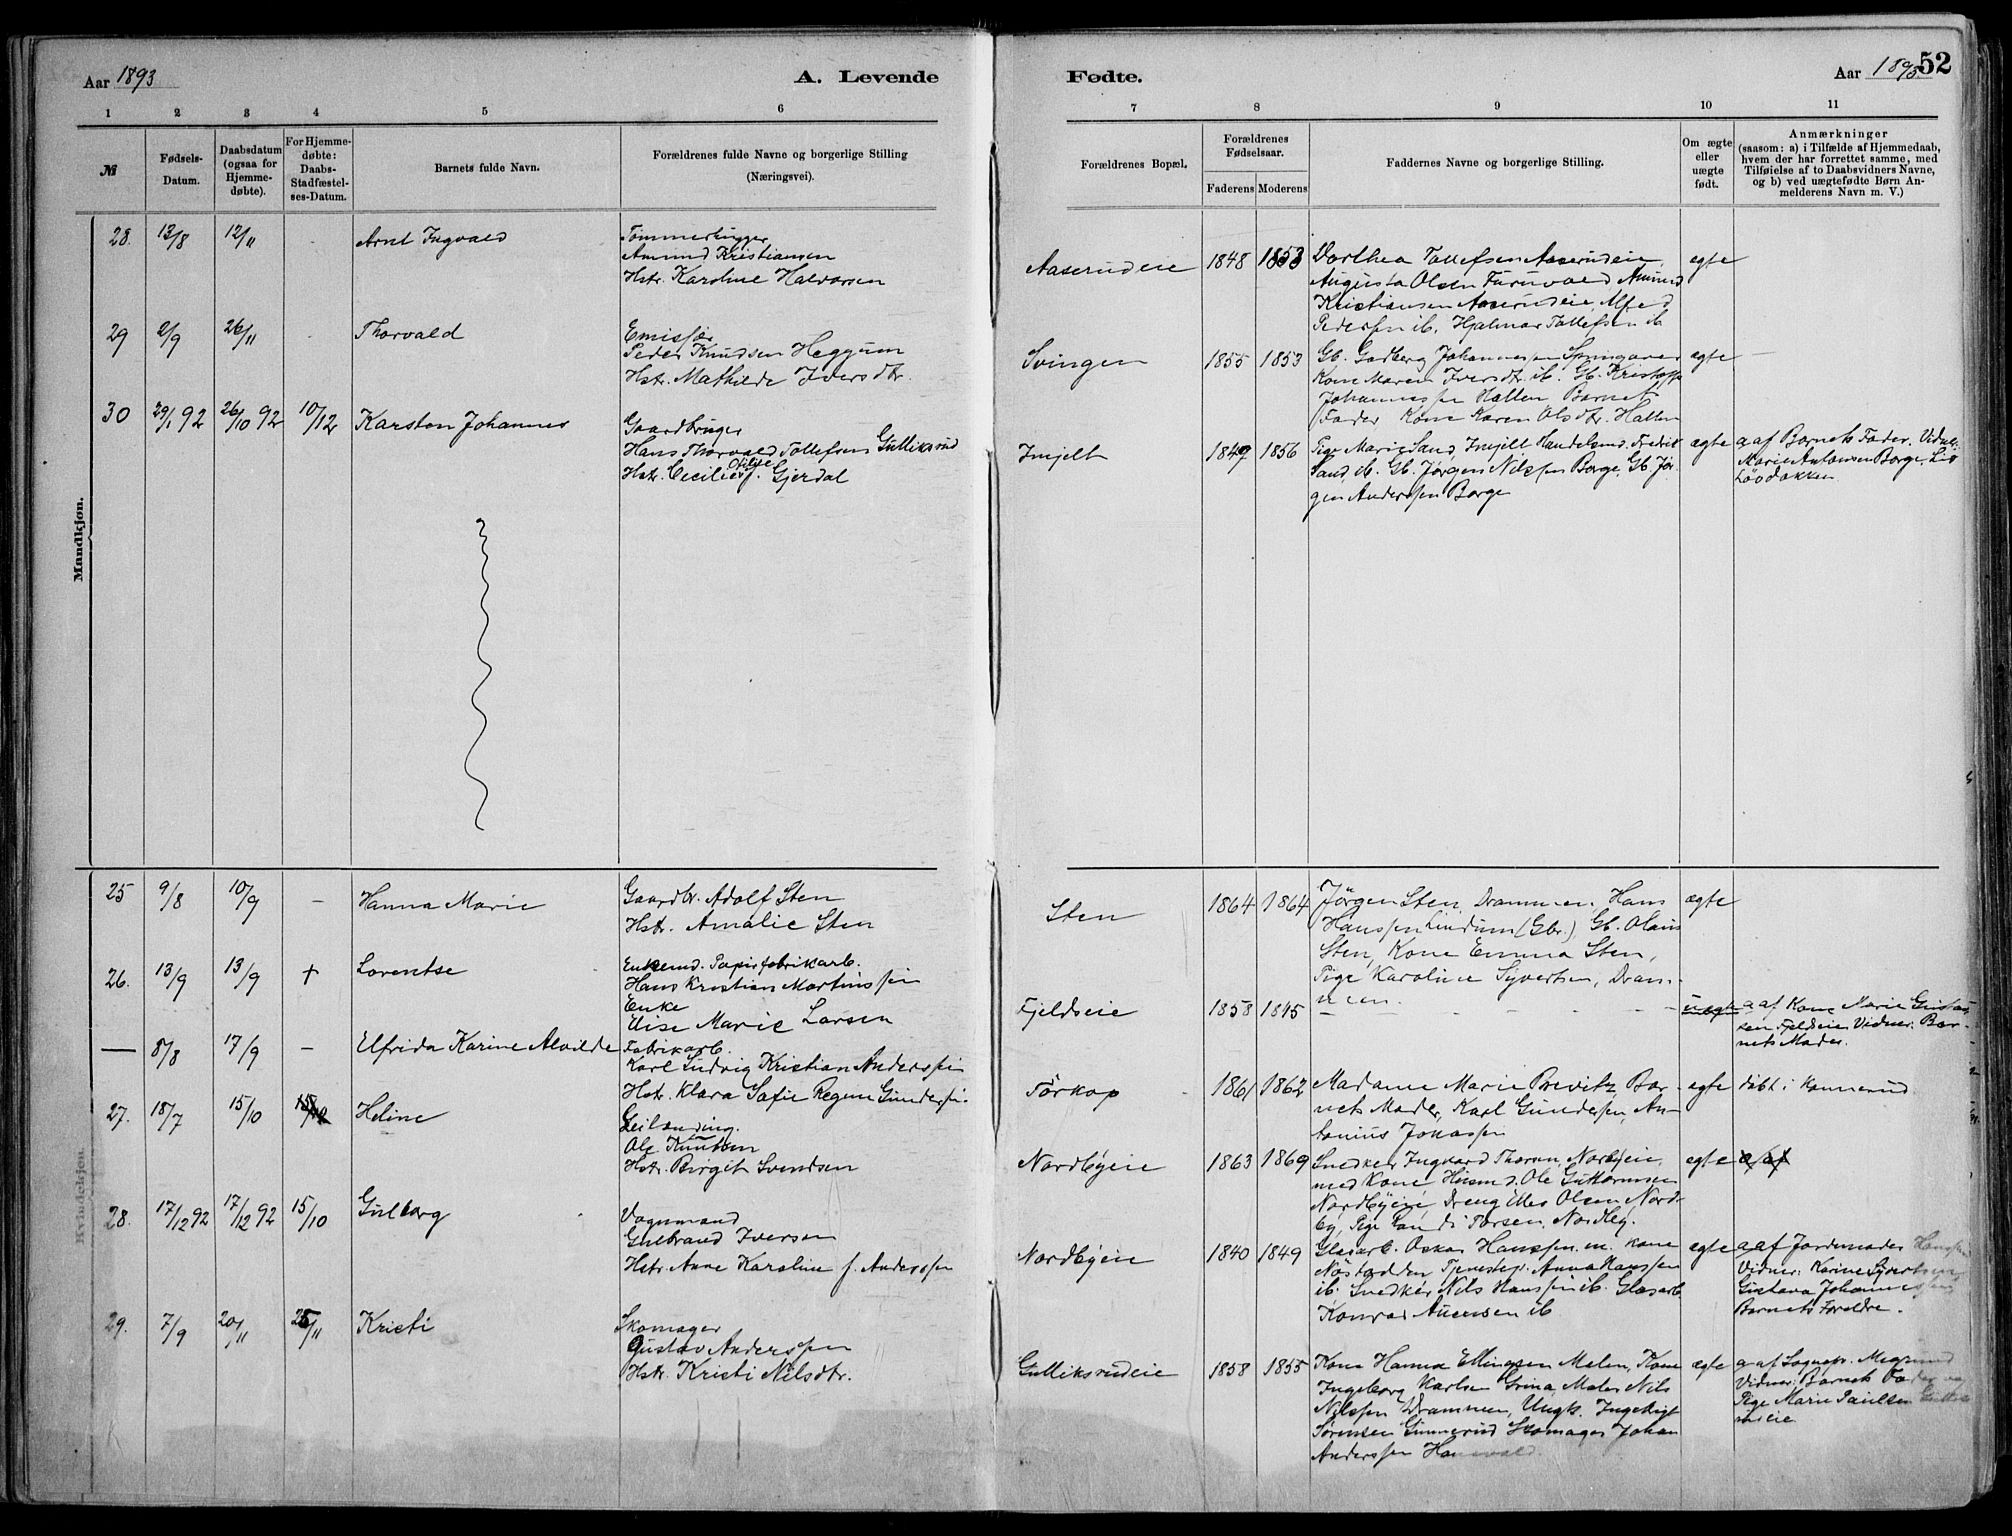 Aar 1893
A. Levende
Fødte.
Aar 1893
52
1 2 3 4 5 6 7 8 9 10 11
№
Fødsels-
Datum.
Daabsdatum
(ogsaa for
Hjemme-
døbte).
For Hjemme-
døbte:
Daabs-
Stadfæstel-
ses-Datum.
Barnets fulde Navn.
Forældrenes fulde Navne og borgerlige Stilling
(Næringsvei).
Forældrenes Bopæl.
Forældrenes
Fødselsaar.
Faderens Moderens
Faddernes Navne og borgerlige Stilling.
Om ægte
eller
uægte
født.
Anmærkninger
(saasom: a) i Tilfælde af Hjemmedaab,
hvem der har forrettet samme, med
Tilføielse af to Daabsvidners Navne,
og b) ved uægtefødte Børn An-
melderens Navn m. V.)
Mandkjøn.
28. 13/8 12/11 - Arnt Ingvald
Tømmerhugger
Amund Kristiansen
Hstr. Karoline Halvorsen
Aaserudeie 1848 1853
Dorthea Tollefsen Aaserudeie,
Augusta Olsen Furuvald, Amund
Kristiansen Aaserudeie, Alfred
Pedersen ib. Hjalmar Tollefsen ib
egte
29 2/9 26/11 - Thorvald
Peder Knudsen Heggum
Hstr. Mathilde Iversdtr.
Svingen 1855 1853
Gb. Gudberg Johannessen
Kone Maren Iversdtr. ib. Gb. Kristoffer
Johannessen Hatten Barnets
Fader Kone Karen Olsdtr. Hatten
egte -
30 29/1 92 26/10 92 10/12 Karsten Johannes
Gaardbruger
Hans Thorvald Tollefsen Gulliksrud
Hstr. Cecilie Otilie f. Gjerdal
Imjelt 1847 1856
Pige Marie Sand, Imjelt Handelsmd. Fredrik
Sand, ib. Gb. Jørgen Nilssen Borge, Gb. Jør-
gen Anderssen Borge
egte
a af Barnets Fader. Vidne:
Marie Antonsen Borge,
Løvdokken
Kvindekjøn.
25 9/8 10/9 - Hanna Marie
Gaardbr. Adolf Sten
Hstr. Amalie Sten
Sten 1864 1864
Jørgen Sten, Drammen, Hans
Hanssen Lindum (Gbr.), Gb. Olaus
Sten, Kone Emma Sten,
Pige Karoline Syvertsen, Dram-
men.
ægte
26. 13/9 13/9 + Lorentse
Enkemd. Papirfabrikarb.
Hans Kristian Martinssen
Enke
Elise Marie Larsen
Fjeldseie 1858 1845 - - - - - -
uegte
a af Kone Marie Gustav-
sen Fjeldseie, Vidner: Bar-
nets Moder.
— 8/8 17/9 - Elfrida Karine Alvilde
Fabrikarb.
Karl Ludvig Kristian Anderssen
Hstr. Klara Sofie Regine Gunderssen
Tørkop 1861 1862
Madame Marie Brevitz, Bar-
nets Moder, Karl Gundersen, An-
tonius Johassen
egte døbt i Konnerud
27. 18/7 15/10 Heline
Leilænding.
Ole Knutsen
Hstr. Birgit Svendsen
Nordbyeie 1863 1869
Snedker Ingvard Thorsen, Norbyeie,
med Kone Husmd. Ole Guttormsen
Nordbyeie, Dreng Oles Olsen, Nord-
by, Pige Randi Torsen, Nordby.
egte a af
28. 17/12 92 17/12 92 15/10 Gulborg
Vognmand
Gulbrand Iversen
Hstr. Anne Karoline f. Anderssen
Nordbyeie 1840 1849
Glasarb. Oskar Hanssen m. Kone
Nøstødden Tjenestep. Anna Hanssen
ib. Snedker Nils Hanssen ib. Glasarb.
Konrad Auensen ib
egte
a af Jordemoder Hanssen
Vidner: Karine Syvertsen,
Gustava Johannessen,
Barnets Foreldre.
29. 7/9 20/11 25/11 Kristi
Skomager
Gustav Anderssen
Hstr. Kristi Nilsdtr.
Gulliksrudeie 1858 1855
Kone Hanna Ellingsen Malen, Kone
Ingeborg Karlsen Grina, Maler Nils
Nilssen Drammen, Ungk. Ingebrigt
Sørensen Gunnerud Skomager Johan
Anderssen
ægte
a af Sognepr.
Vidner: Barnets Fader og
Pige Marie Paulsen Gulliks-
rudeie